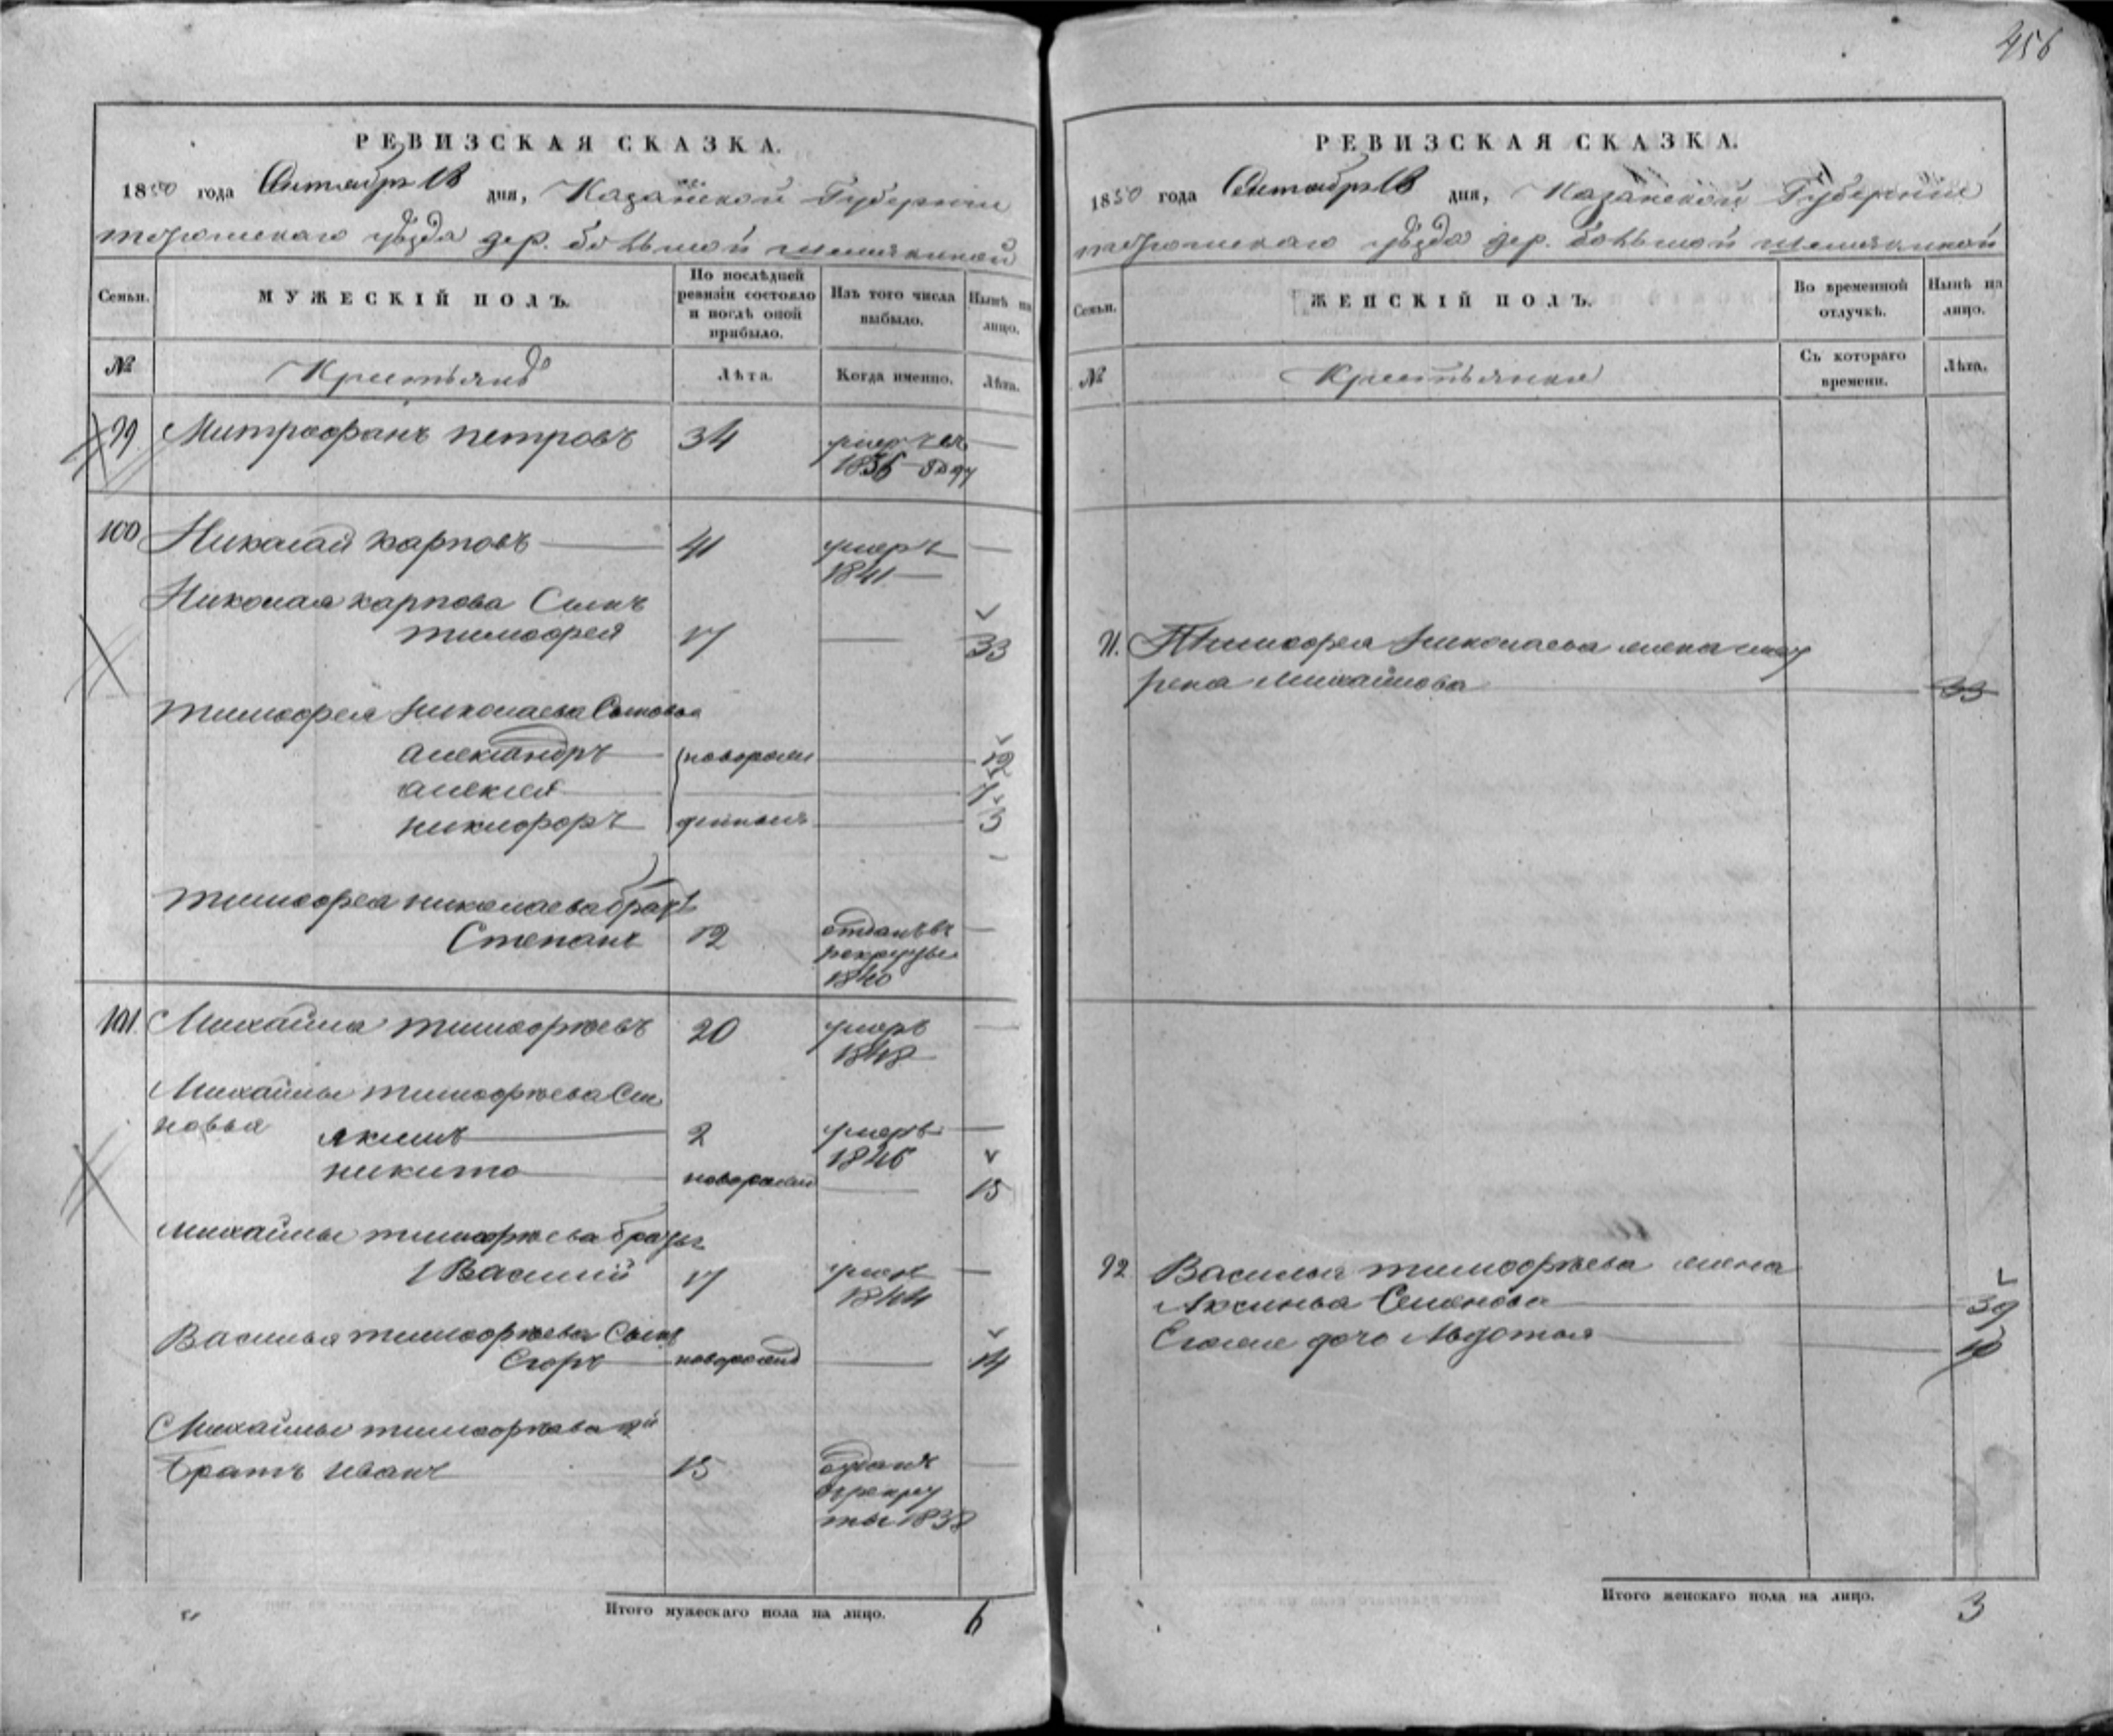 456
РЕВИЗСКАЯ СКАЗКА.
1850 года Октября 18 дня, Казанской Губернии
уѣзда дер. большой
Семьи.
МУЖЕСКІЙ ПОЛЪ.
По послѣдней ревизіи состояло и послѣ оной прибыло.
Изъ того числа выбыло.
Нынѣ на лицо.
№
Крестьянъ
Лѣта.
Когда именно.
Лѣта.
99 Митрофанъ петровъ 34 умеръ
1836 году
100 Николай карповъ 41 умеръ
1841
Николая карпова Сынъ
тимофей 17 33
тимофея николаева Сыновья
александръ новорож 12
алексей 7
никифоръ 3
тимофея николаева братъ
Степанъ 12 отданъ въ
рекруты
1840
101. Михайла тимофѣевъ 20 умеръ
1848
Михайлы тимофѣева Сы
новья якимъ 2 умеръ
1846
никита новорожд 15
михайлы тимофѣева братъ
1 Василий 17 умеръ
1844
Василья тимофѣева Сынъ
Егоръ новорожд 14
Михайлы тимофѣева 2й
братъ иванъ 15 отданъ
врекру
ты 1838
Итого мужескаго пола на лицо. 6
РЕВИЗСКАЯ СКАЗКА.
1850 года Октября 18 дня, Казанской Губернии
уѣзда дер. большой
Семьи.
ЖЕНСКІЙ ПОЛЪ.
Во временной отлучкѣ.
Нынѣ на лицо.
№
Крестьянки
Съ котораго времени.
Лѣта.
Тимофея николаева жена
михайлова 33
Василья тимофѣева жена
Аксинья Семенова 39
Его дочь Авдотья 10
Итого женскаго пола на лицо. 3